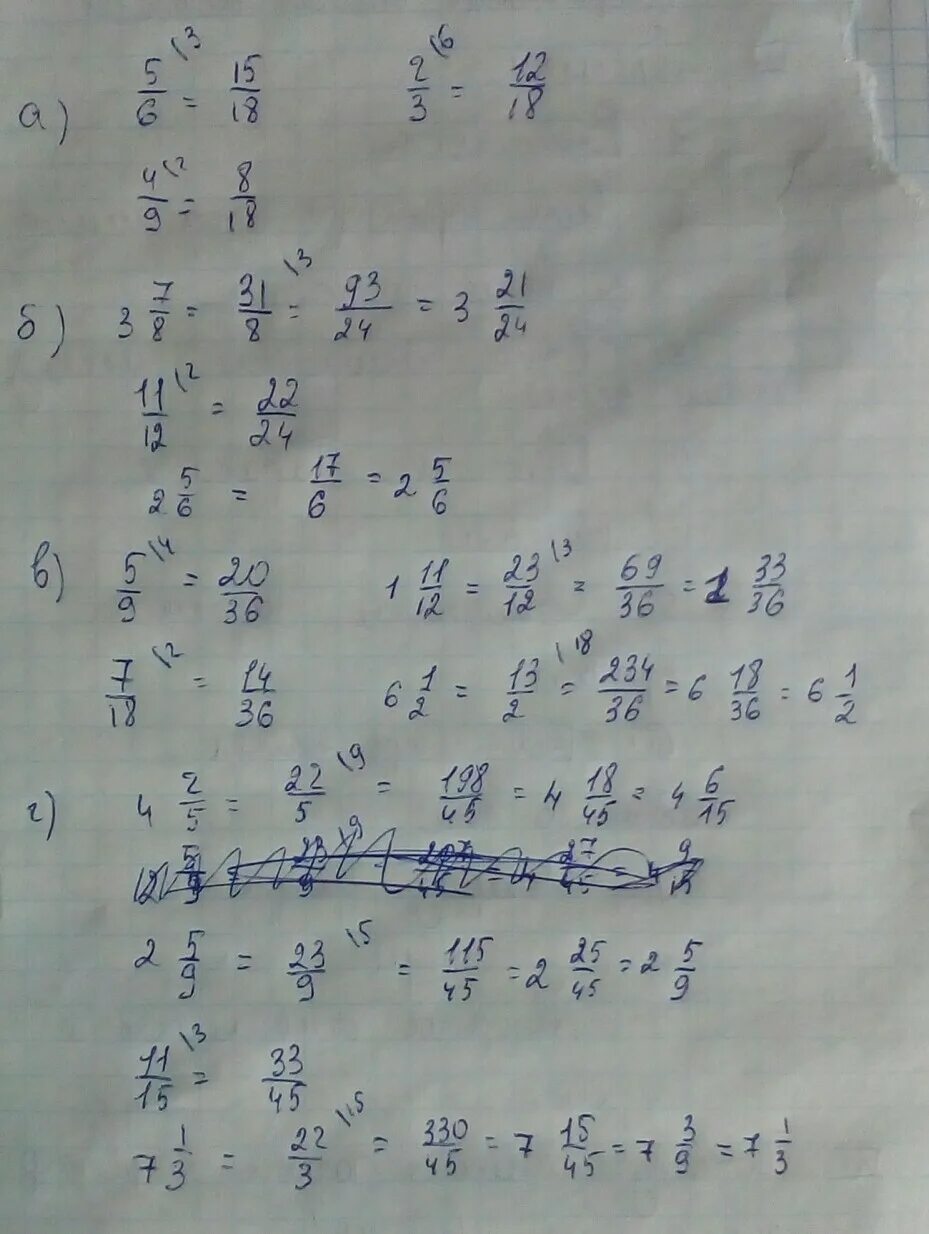 а) 5/6 \3 = 15/18 2/3 \6 = 12/18
4/9 \2 = 8/18
б) 3 7/8 = 31/8 \3 = 93/24 = 3 21/24
11/12 \2 = 22/24
2 5/6 = 17/6 = 2 5/6
в) 5/9 \4 = 20/36 1 11/12 = 23/12 \3 = 69/36 = 1 33/36
7/18 \2 = 14/36 6 1/2 = 13/2 \18 = 234/36 = 6 18/36 = 6 1/2
г) 4 2/5 = 22/5 \9 = 198/45 = 4 18/45 = 4 6/15
2 5/9 = 23/9 \5 = 115/45 = 2 25/45 = 2 5/9
11/15 \3 = 33/45
7 1/3 = 22/3 \15 = 330/45 = 7 15/45 = 7 3/9 = 7 1/3